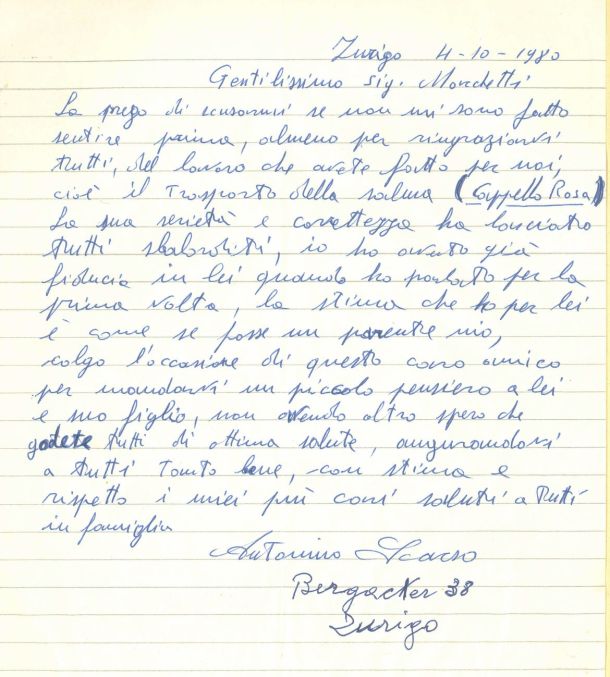 Zurigo 4-10-1980
Gentilissimo Sig. Marchetti
La prego di scusarmi se non mi sono fatto
sentire prima, almeno per ringraziarvi
tutti, del lavoro che avete fatto per noi,
cioè il Trasporto della salma (Cappello Rosa)
La sua serietà e correttezza ha lasciato
tutti sbalorditi, io ho avuto già
fiducia in lei quando ho parlato per la
prima volta, la stima che ho per lei
è come se fosse un parente mio,
colgo l'occasione di questo caro amico
per mandarvi un piccolo pensiero a lei
e suo figlio, non avendo altro spero che
godete tutti di ottima salute, augurandovi
a tutti Tanto bene, con stima e
rispetto i miei più cari saluti a tutti
in famiglia
Antonino Scarso
Bergacker 38
Zurigo